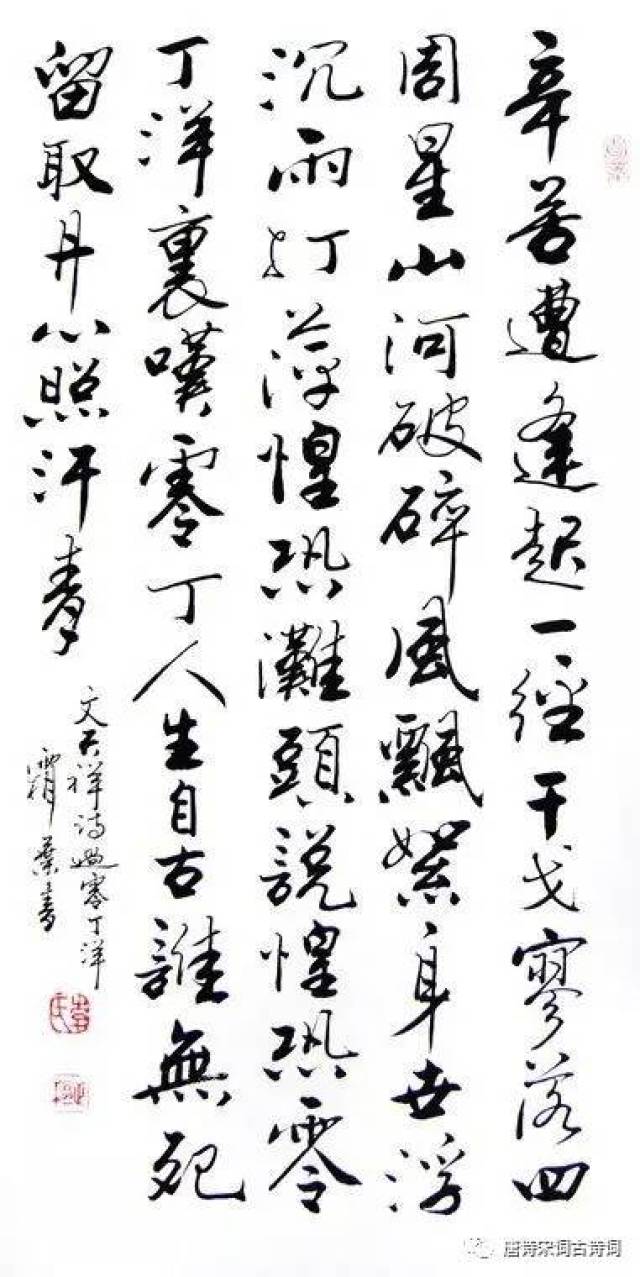 辛苦遭逢起一經干戈寥落四
周星山河破碎風飄絮身世浮
沉雨打萍惶恐灘頭說惶恐零
丁洋裏嘆零丁人生自古誰無死
留取丹心照汗青
文天祥诗過零丁洋
霜葉書
唐诗宋词古诗词